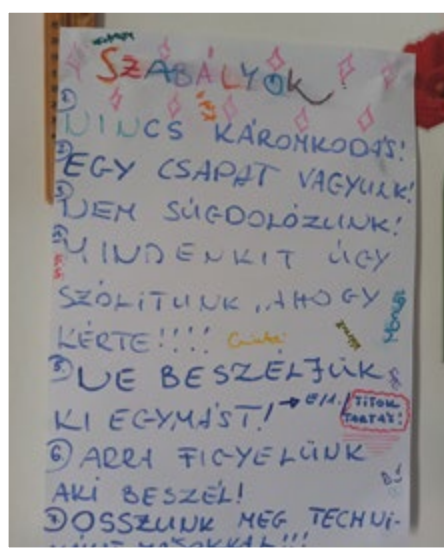 SZABÁLYOK
1. NINCS KÁROMKODÁS!
2. EGY CSAPAT VAGYUNK!
3. NEM SÚGDOLÓZUNK!
4. MINDENKIT ÚGY
SZÓLÍTUNK, AHOGY
KÉRTE!!!!
5. NE BESZÉLJÜK
KI EGYMÁST! → TITOK
TARTÁS!
6. ARRA FIGYELÜNK
AKI BESZÉL!
7. OSSZUNK MEG TECHNI-
MÁSOKKAL!!!